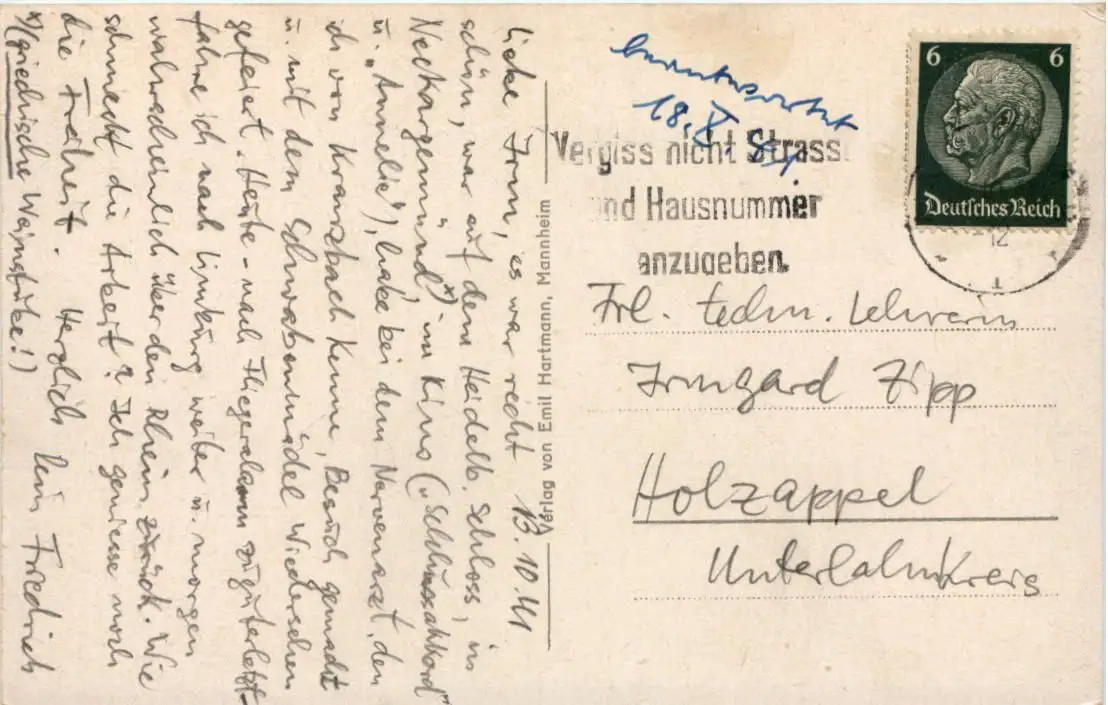 13.10.41
Liebe Irm, es war recht
schön, war auf dem Heidelb. Schloss, in
Neckargemünd x), im Kino („Schlussakkord"
u. „Annelie"), habe bei dem Nervenarzt, den
ich von Kranzbach kenne, Besuch gemacht
u. mit dem Schwabenmädel Wiedersehen
gefeiert. Heute - nach Fliegeralarm zuguterletzt -
fahre ich nach Limburg weiter u. morgen
wahrscheinlich über den Rhein zurück. Wie
schmeckt die Arbeit? Ich geniesse noch
die Freiheit. Herzlich Dein Friedrich
x) (griechische Weinstube!)
Verlag von Emil Hartmann, Mannheim
beantwortet
18. X. 41
Vergiss nicht Strasse
und Hausnummer
anzugeben.
6 6
Deutsches Reich
12
Frl. techn. Lehrerin
Irmgard Zipp
Holzappel
Unterlahnkreis